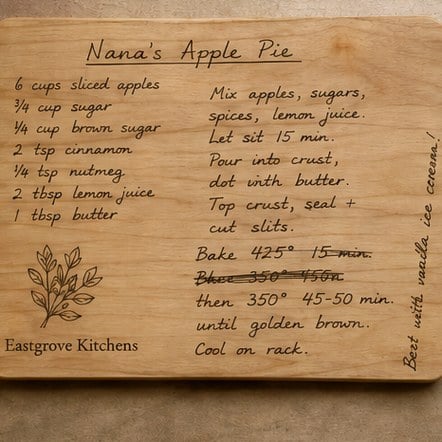 Nana's Apple Pie
6 cups sliced apples
3/4 cup sugar
1/4 cup brown sugar
2 tsp cinnamon
1/4 tsp nutmeg
2 tbsp lemon juice
1 tbsp butter
Eastgrove Kitchens
Mix apples, sugars,
spices, lemon juice.
Let sit 15 min.
Pour into crust,
dot with butter.
Top crust, seal +
cut slits.
Bake 425° 15 min.
350°
then 350° 45-50 min.
until golden brown.
Cool on rack.
with ice